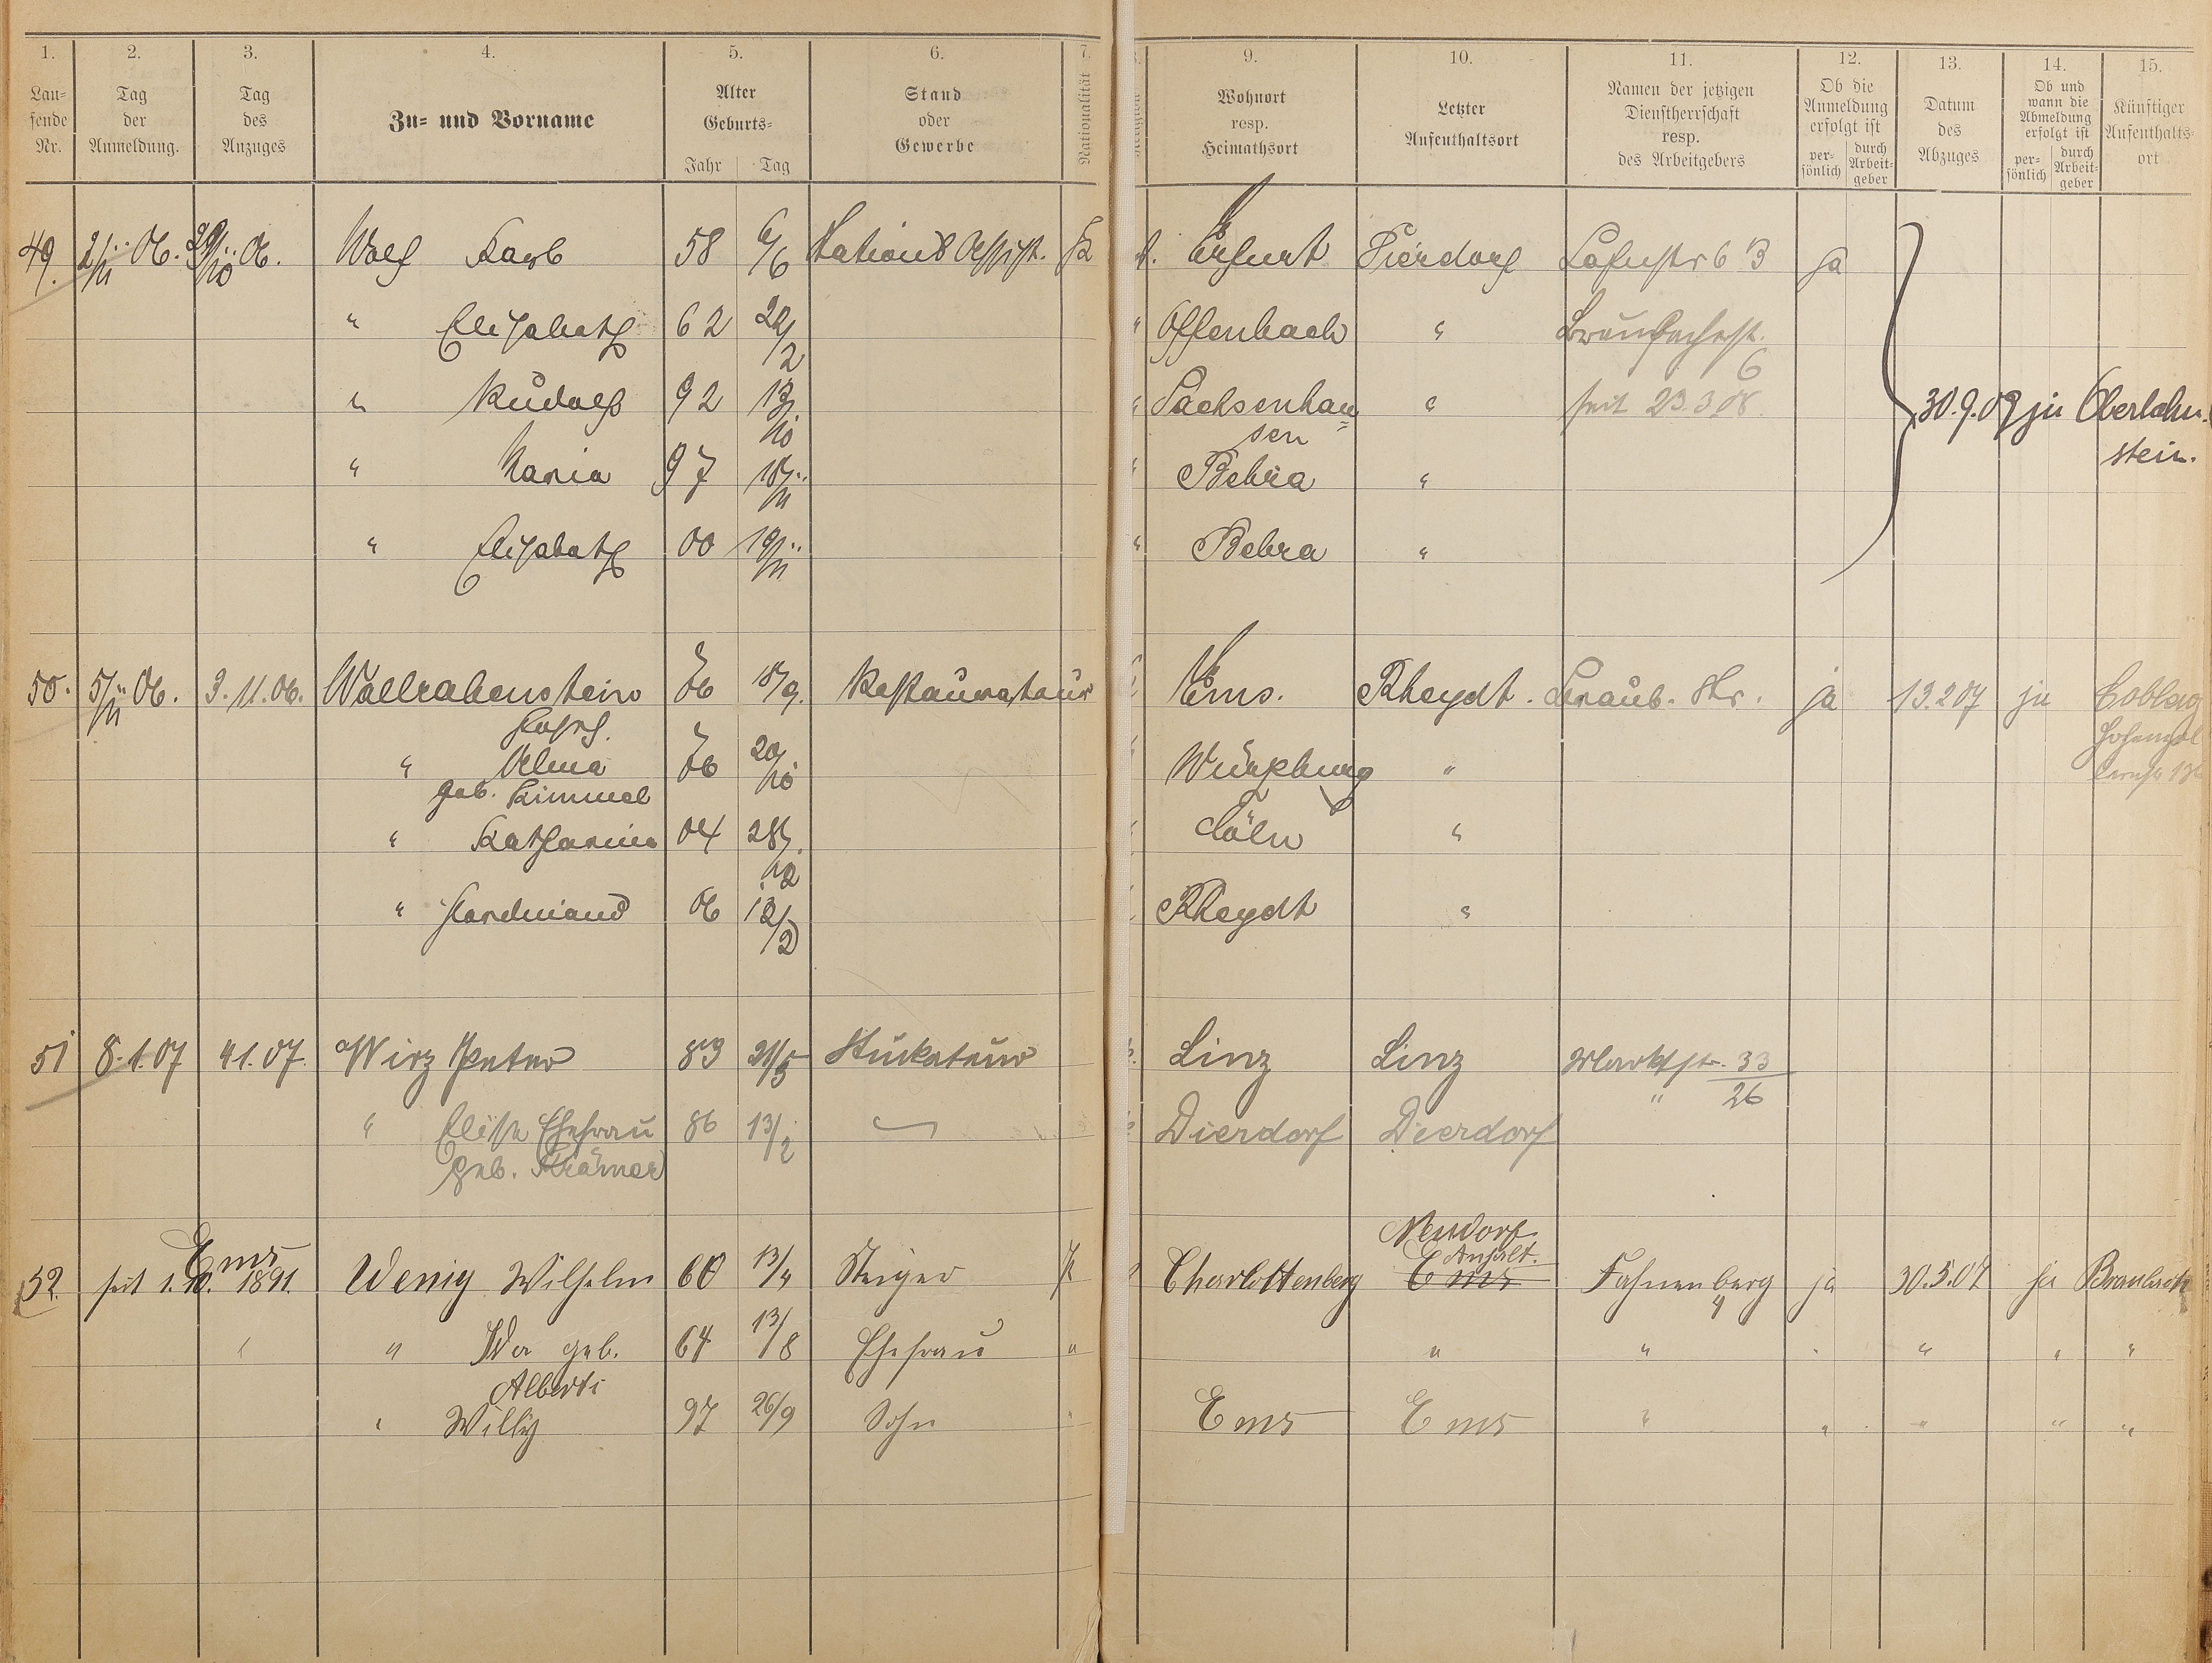 1. 2. 3. 4. 5. 6. 7. 9. 10. 11. 12. 13. 14. 15.
Lau-
fende
Nr.
Tag
der
Anmeldung.
Tag
des
Anzuges
Zu- und Vorname
Alter
Geburts-
Jahr Tag
Stand
oder
Gewerbe
Nationalität
Wohnort
resp.
Heimathsort
Letzter
Aufenthaltsort
Namen der jetzigen
Dienstherrschaft
resp.
des Arbeitgebers
Ob die
Anmeldung
erfolgt ist
per-
sönlich
durch
Arbeit-
geber
Datum
des
Abzuges
Ob und
wann die
Abmeldung
erfolgt ist
per-
sönlich
durch
Arbeit-
geber
Künftiger
Aufenthalts-
ort
49. 2/11 06. 29/10 06. Wolf Karl 58 6/6 Stations Assist. Erfurt Dierdorf Lahnstr 63 ja
" Elisabeth 62 22/2 " Offenbach " Braubacherstr. 6
" Rudolf 92 13/10 " Sachsenhau= " seit 23.3 08. 30.9.09 ja Oberlahn-
sen stein.
" Maria 97 18/11 " Bebra "
" Elisabeth 00 19/11 " Bebra "
50. 5/11 06. 3.11.06. Wallrabenstein 76 18/9. Restaurateur Ems. Rheydt. Graub. Str. ja 13.2 07 ja Coblenz
Josef. Hohenzol
" Alma 76 20/10 Würzburg " lernstr
geb. Kimmel
" Katharina 04 28/12 Cöln "
" Ferdinand 06 12/2 Rheydt "
51 8.1.07 4.1.07. Wirz Peter 83 31/5 Stukateur Linz Linz Marktstr. 33
" 26
" Elise Ehefrau 86 13/2 Dierdorf Dierdorf
geb. Krämer
Ems Neudorf
Anhalt.
52. seit 1.10. 1891. Wenig Wilhelm 60 13/4 Steiger Charlottenberg Ems Fahnenberg 4 ja 30.5.07 ja Braubach
" " Ida geb. 64 13/8 Ehefrau " " " " " " "
Alberti
" Willy 97 26/9 Sohn " Ems Ems " " " " "